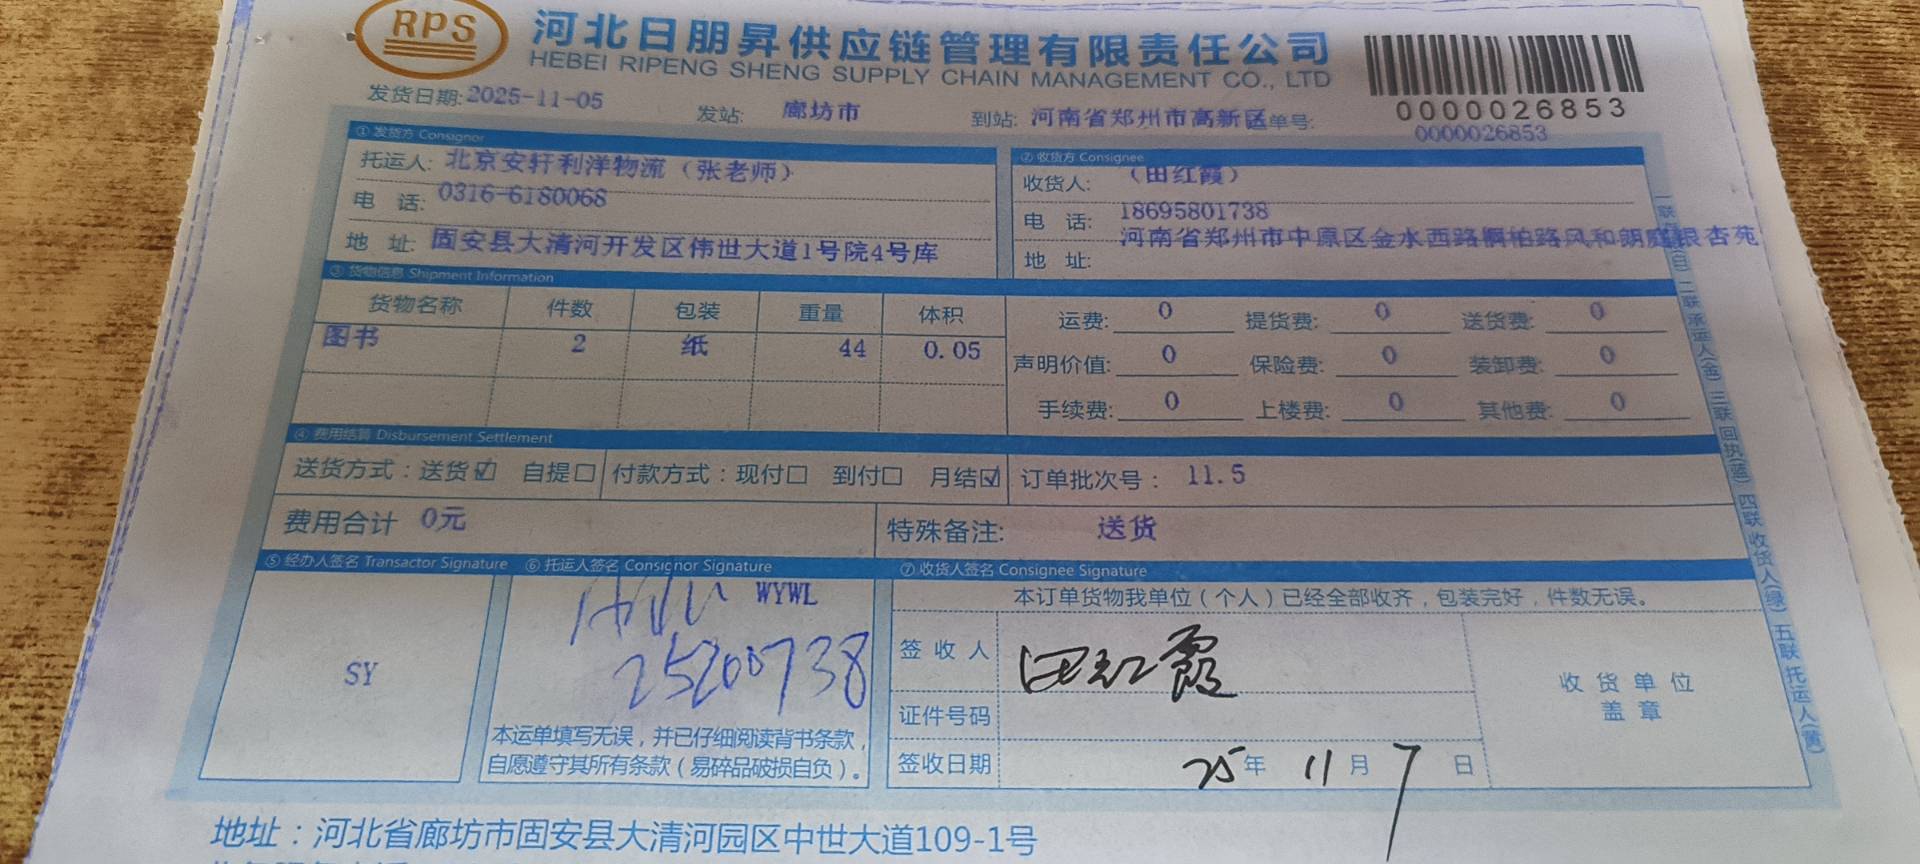 RPS 河北日朋昇供应链管理有限责任公司
HEBEI RIPENG SHENG SUPPLY CHAIN MANAGEMENT CO., LTD
0000026853
发货日期:2025-11-05 发站: 廊坊市 到站: 河南省郑州市高新区 单号: 0000026853
① 发货方 Consignor
托运人: 北京安轩利洋物流（张老师）
电 话: 0316-6180068
地 址: 固安县大清河开发区伟世大道1号院4号库
② 收货方 Consignee
收货人: （田红霞）
电 话: 18695801738
地 址: 河南省郑州市中原区金水西路桐柏路风和朗庭银杏苑
③ 货物信息 Shipment Information
货物名称 件数 包装 重量 体积
图书 2 纸 44 0.05
运费: 0 提货费: 0 送货费: 0
声明价值: 0 保险费: 0 装卸费: 0
手续费: 0 上楼费: 0 其他费: 0
④ 费用结算 Disbursement Settlement
送货方式：送货☑ 自提☐ 付款方式：现付☐ 到付☐ 月结☑ 订单批次号： 11.5
费用合计 0元 特殊备注: 送货
⑤ 经办人签名 Transactor Signature
SY
⑥ 托运人签名 Consignor Signature
WYWL
25200738
本运单填写无误，并已仔细阅读背书条款，
自愿遵守其所有条款（易碎品破损自负）。
⑦ 收货人签名 Consignee Signature
本订单货物我单位（个人）已经全部收齐，包装完好，件数无误。
签 收 人 田红霞
证件号码
签收日期 25年 11月 7日
收 货 单 位
盖 章
二联 承运人(金) 三联 回执(蓝) 四联 收货人(绿) 五联 托运人(黄)
地址：河北省廊坊市固安县大清河园区中世大道109-1号